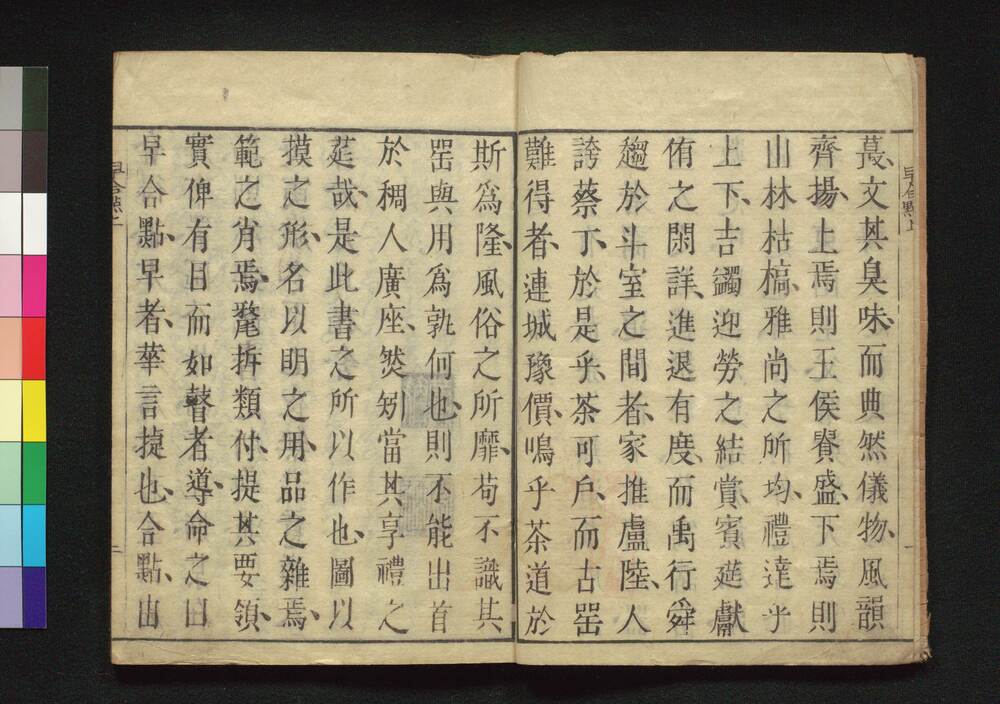 蓂文其臭味而典然儀物風韻
齊揚上焉則王侯賸盛下焉則
山林枯槁雅尚之所均禮達乎
上下吉蠲迎勞之結賞賓莚獻
侑之閑詳進退有度而禹行舜
趨於斗室之間者家推盧陸人
誇蔡丁於是乎茶可戶而古噐
難得者連城豫價鳴乎茶道於
斯爲隆風俗之所靡苟不識其
噐與用爲孰何也則不能出首
於稠人廣座焂矧當其享禮之
莚哉是此書之所以作也圖以
摸之形名以明之用品之雜焉
範之肖焉氂拆類付提其要領
實俾有目而如瞽者導命之曰
早合點早者華言㨗也合點由